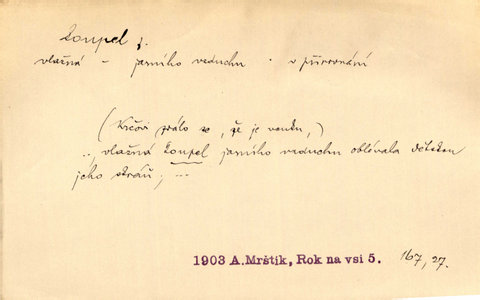 koupel f.
vlažná – jarního vzduchu • v přirovnání
(Kččovi zdálo se, že je venku,)
.., vlažná koupel jarního vzduchu oblévala dětskou
jeho tvář; ...
1903 A.Mrštík, Rok na vsi 5. 167, 27.